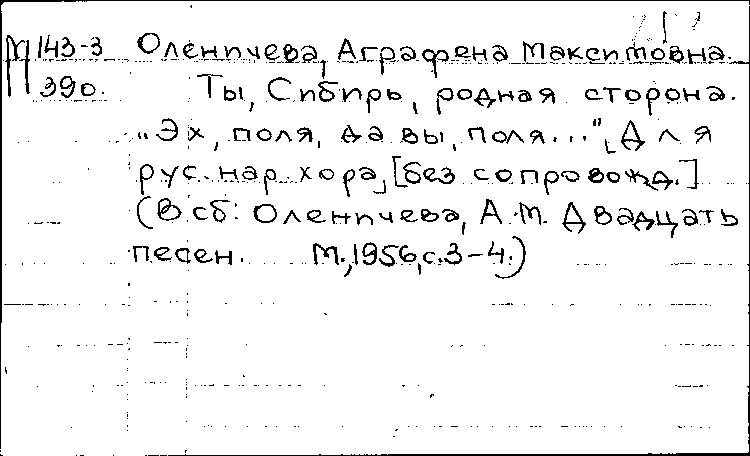 М 143-3 Оленичева, Аграфена Максимовна.
390. Ты, Сибирь, родная сторона.
„Эх, поля, да вы, поля...“, Для
рус. нар. хора, [без сопровожд.]
(В сб: Оленичева, А.М. Двадцать
песен. М., 1956, с. 3-4.)